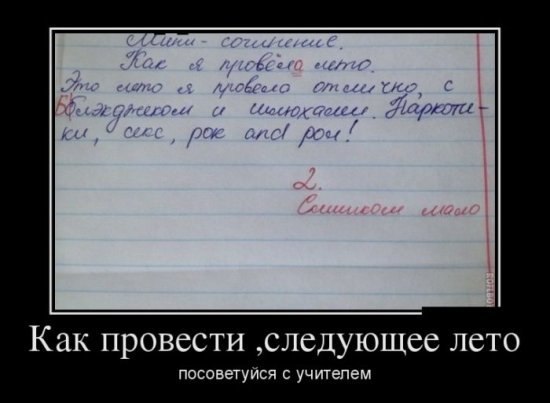 Мини - сочинение.
Как я провёла лето.
Это лето я провела отлично, с
Блэкджеком и шлюхами. Наркоти-
ки, секс, рок and рол!
2.
Слишком мало
Как провести ,следующее лето
посоветуйся с учителем